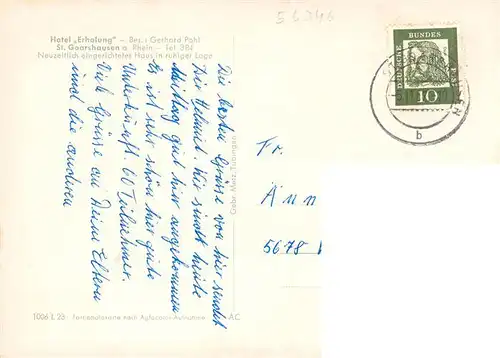 56346
Hotel „Erholung" – Bes.: Gerhard Pohl
St. Goarshausen a. Rhein – Tel. 383
Neuzeitlich eingerichtetes Haus in ruhiger Lage
Die besten Grüße von hier sendet
Dir Helmut. Wir sind heute
Mittag gut hier angekommen
Es ist sehr schön hier gute
Unterkunft. 60 Teilnehmer.
Viele Grüße an Deine Eltern
und die anderen
Gebr. Metz, Tübingen
1006 L 23 Farbenaufnahme nach Agfacolor-Aufnahme AC
DEUTSCHE
BUNDES
10
b
Fr.
Änn
5678